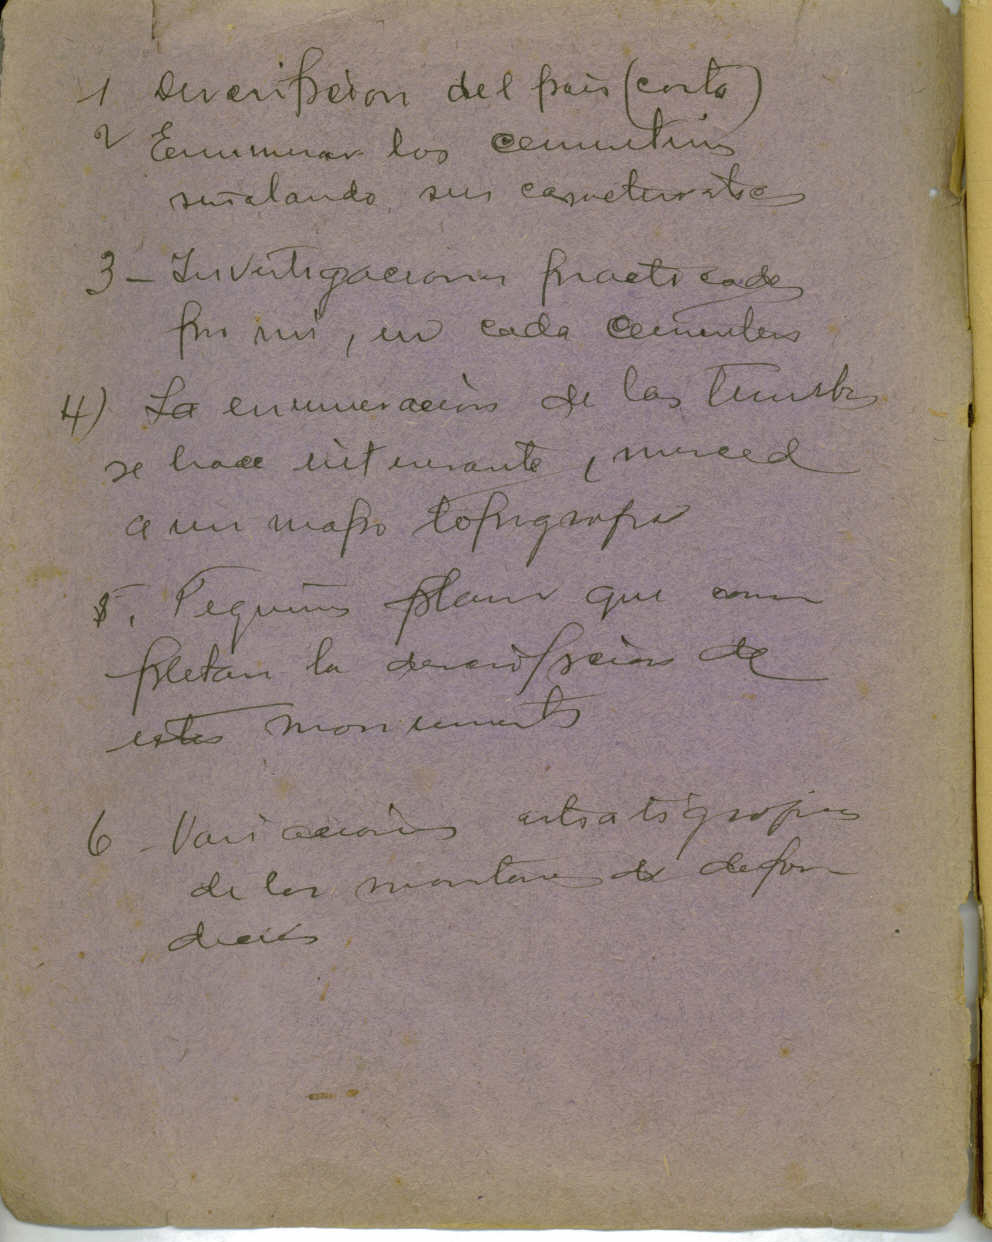 1 Descripcion del pais (corta)
2 Enumerar los cementerios
señalando sus caracteristicas
3 - Investigaciones practicadas
por mi, en cada cementerio
4) La enumeración de las tumbas
se hace interesante, merced
a un mapa topografico
5. Pequeños planos que com
pletan la descripcion de
estos monumentos
6 - Variaciones estratigraficas
de los